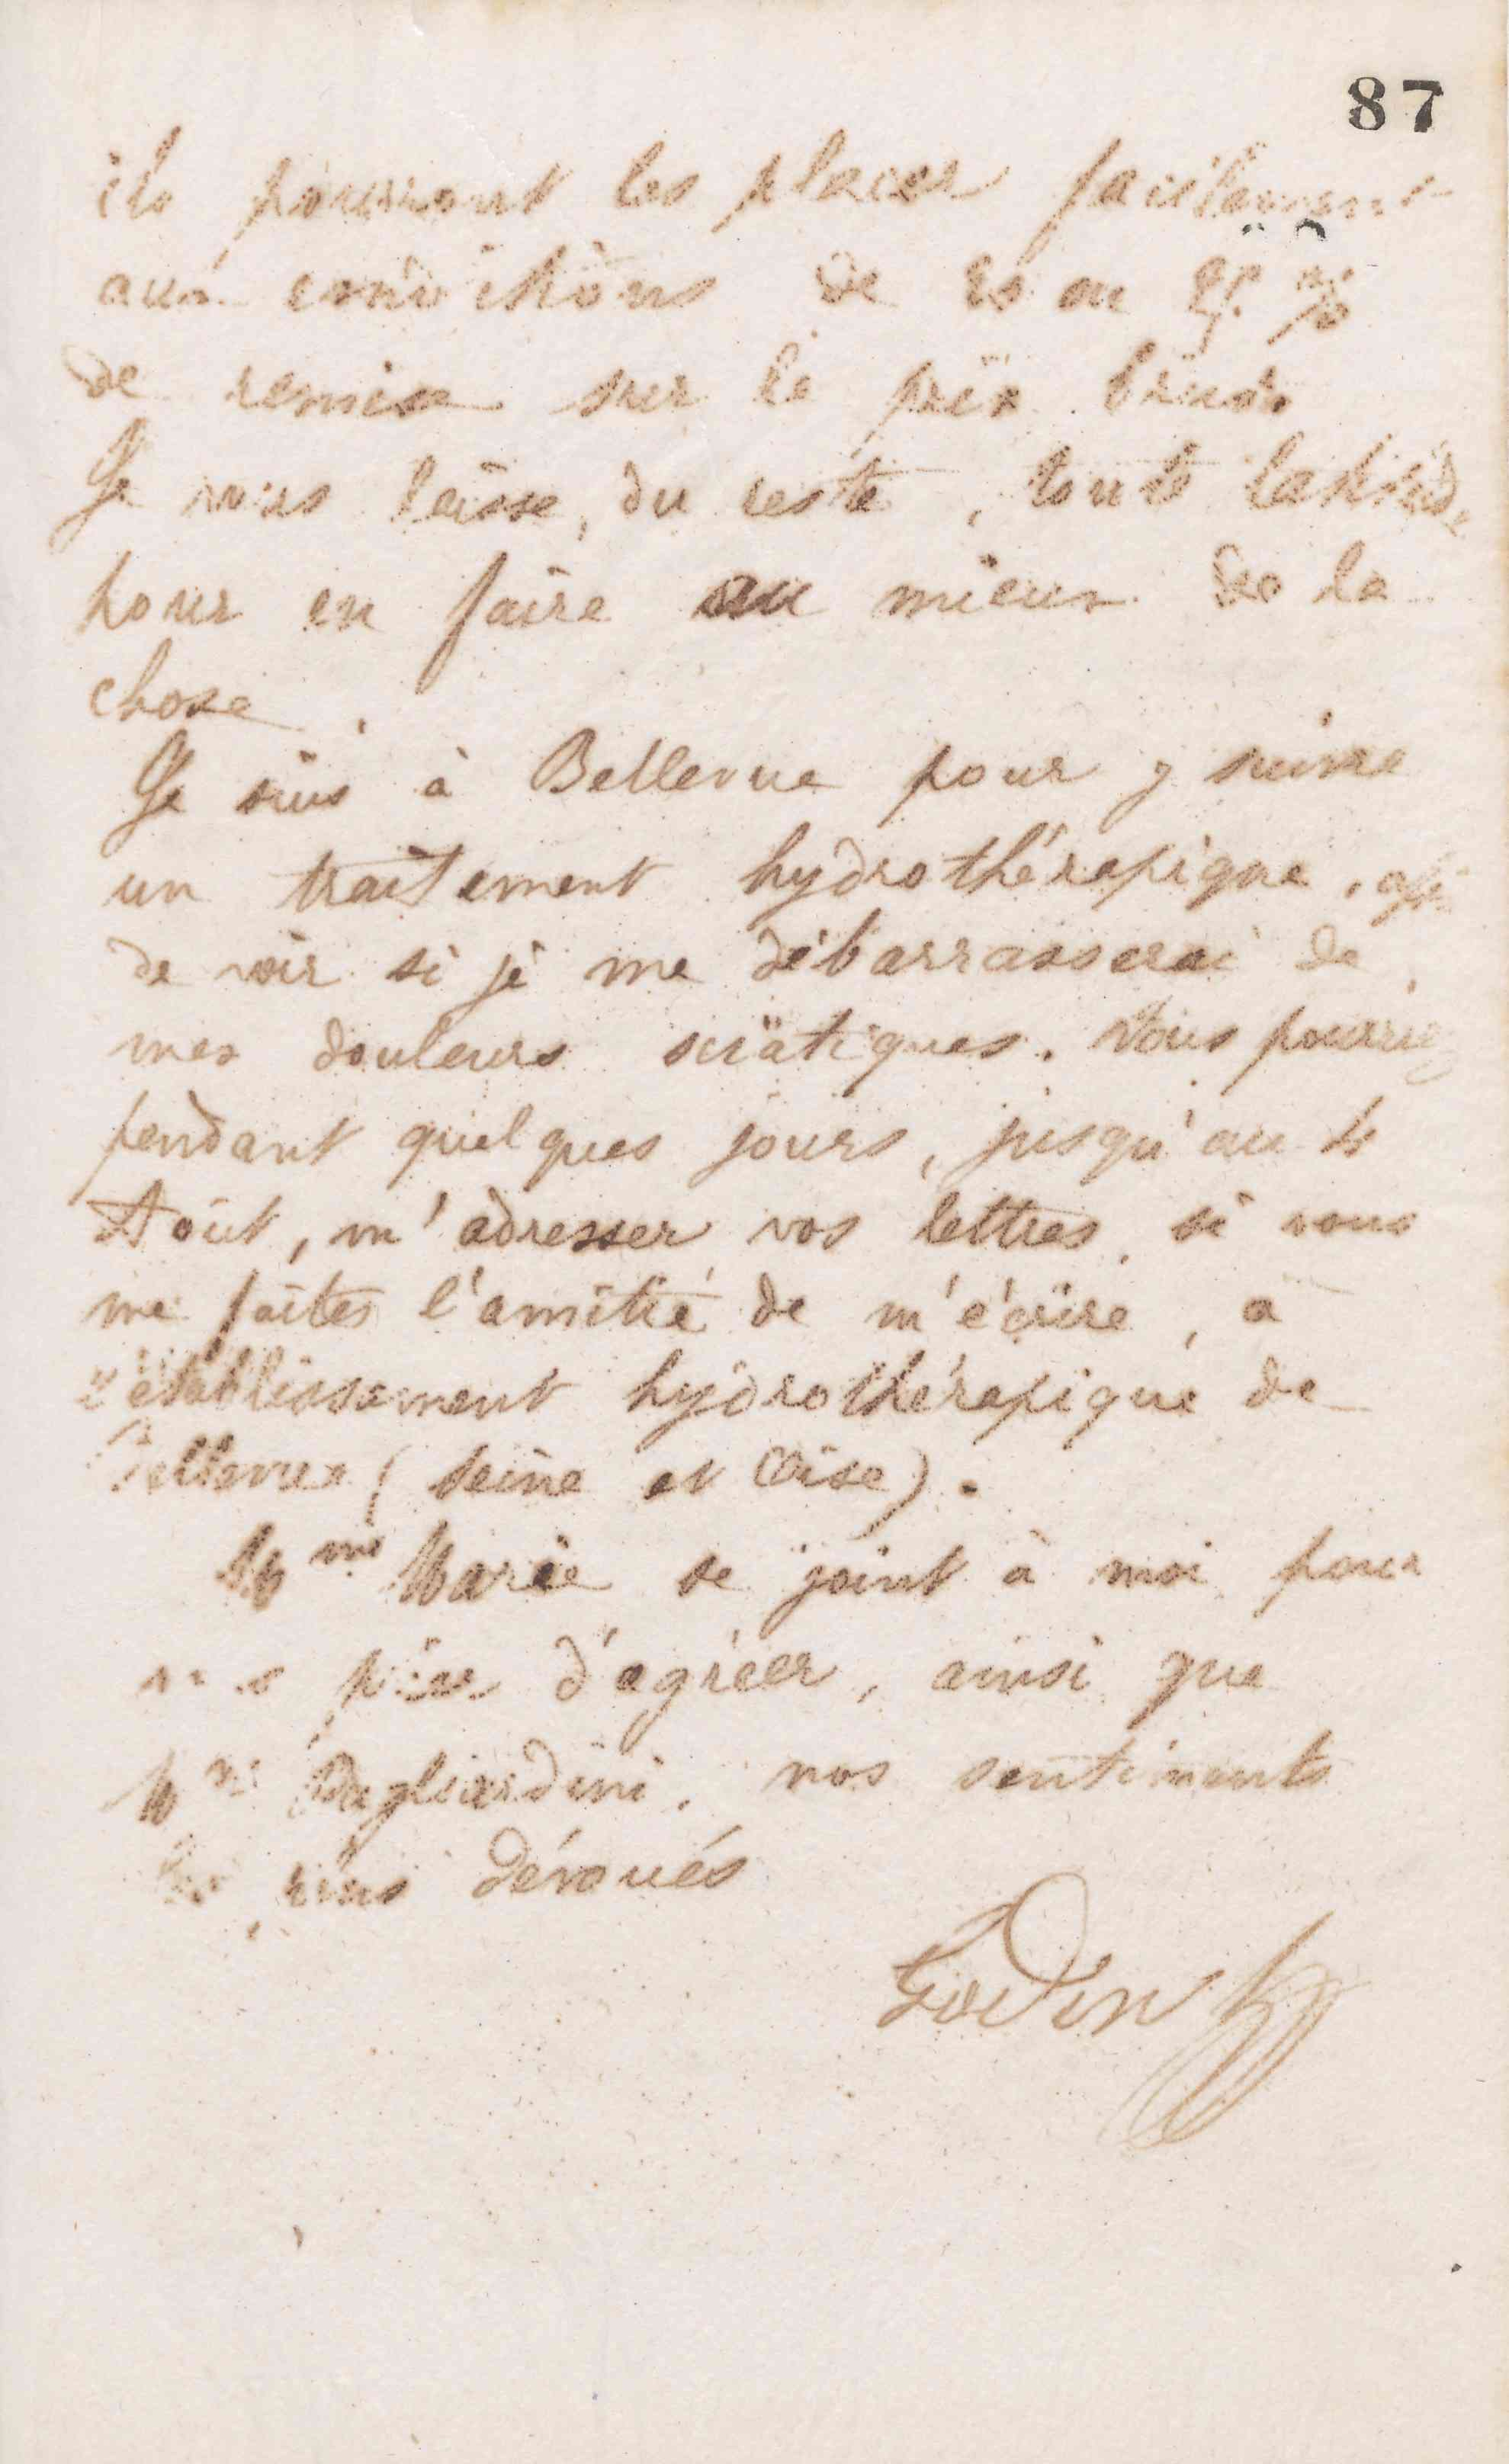 87
ils pourront les placer facilement
aux conditions de 20 ou 25 %
de remise sur le prix brut.
Je vous laisse, du reste, toute latitude
pour en faire au mieux de la
chose.
Je suis à Bellevue pour y suivre
un traitement hydrothérapique, afin
de voir si je me débarrasserai de
mes douleurs sciatiques. Vous pourriez
pendant quelques jours, jusqu'au
Août, m'adresser vos lettres, si vous
me faites l'amitié de m'écrire, à
l'établissement hydrothérapique de
Bellevue (Seine et Oise).
Mme Marie se joint à moi pour
vous prier d'agréer, ainsi que
Mme Pagliardini, nos sentiments
les plus dévoués
Godin